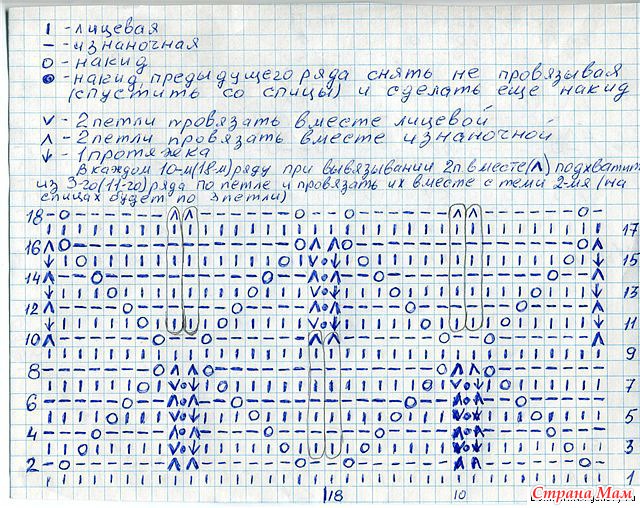 I - лицевая
— - изнаночная
O - накид
- накид предыдущего ряда снять не провязывая
(спустить со спицы) и сделать еще накид
v - 2 петли провязать вместе лицевой
ʌ - 2 петли провязать вместе изнаночной
↓ - 1 протяжка
В каждом 10-м(18-м) ряду при вывязывании 2п вместе(ʌ) подхватить
из 3-го(11-го) ряда по петле и провязать их вместе с теми 2-мя (на
спицах будет по 3 петли)
18
17
16
15
14
13
12
11
10
9
8
7
6
5
4
3
2
1
18
10
Страна Мам